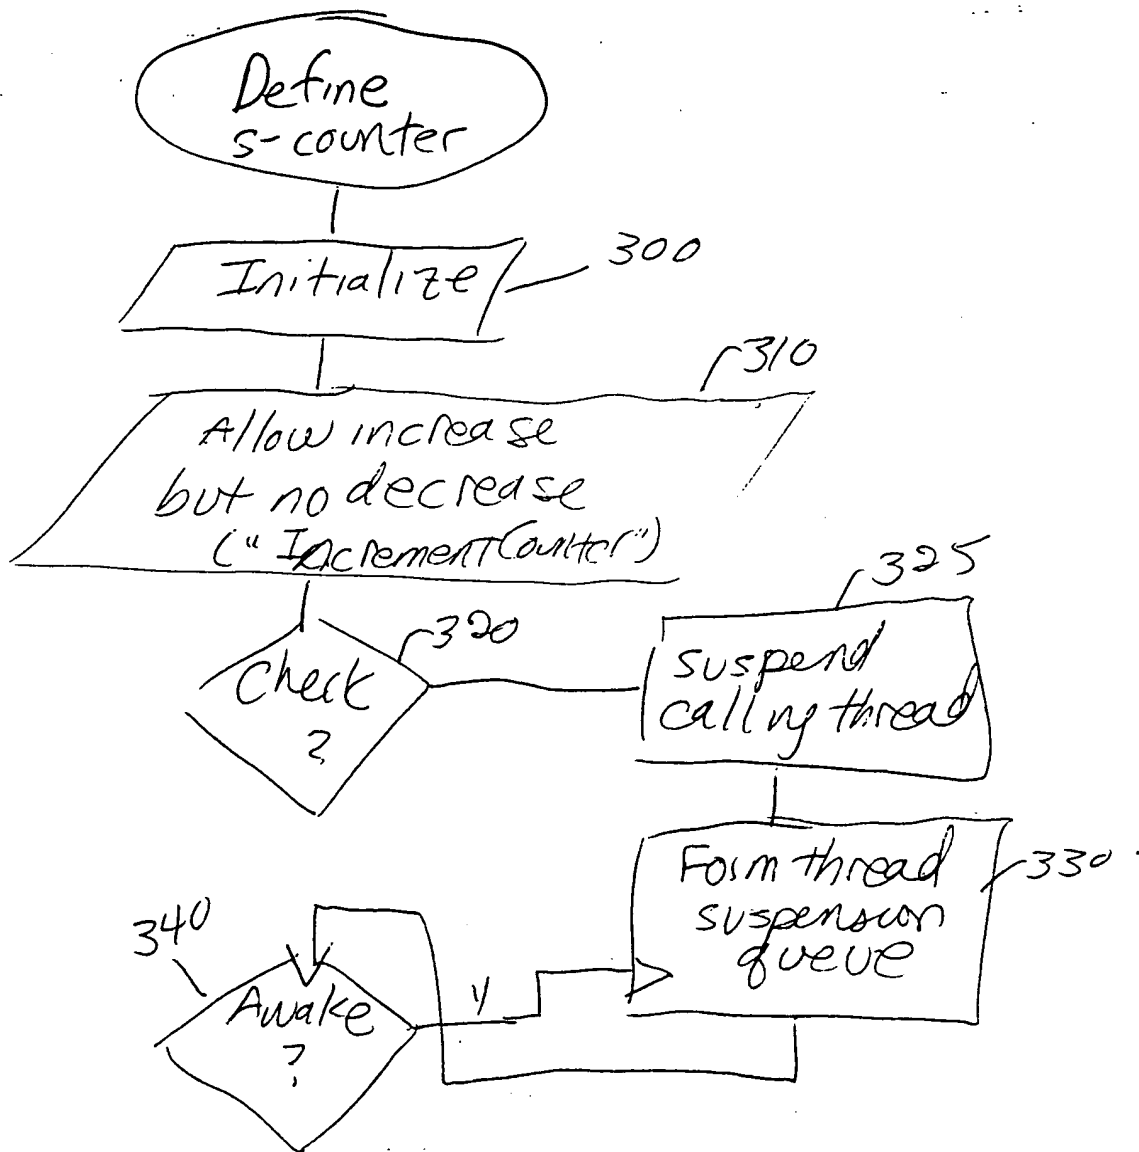 Define
s-counter
Initialize
300
310
Allow increase
but no decrease
("IncrementCounter")
320
Check
?
325
suspend
calling thread
Form thread
suspension
queue
330
340
Awake
?
y